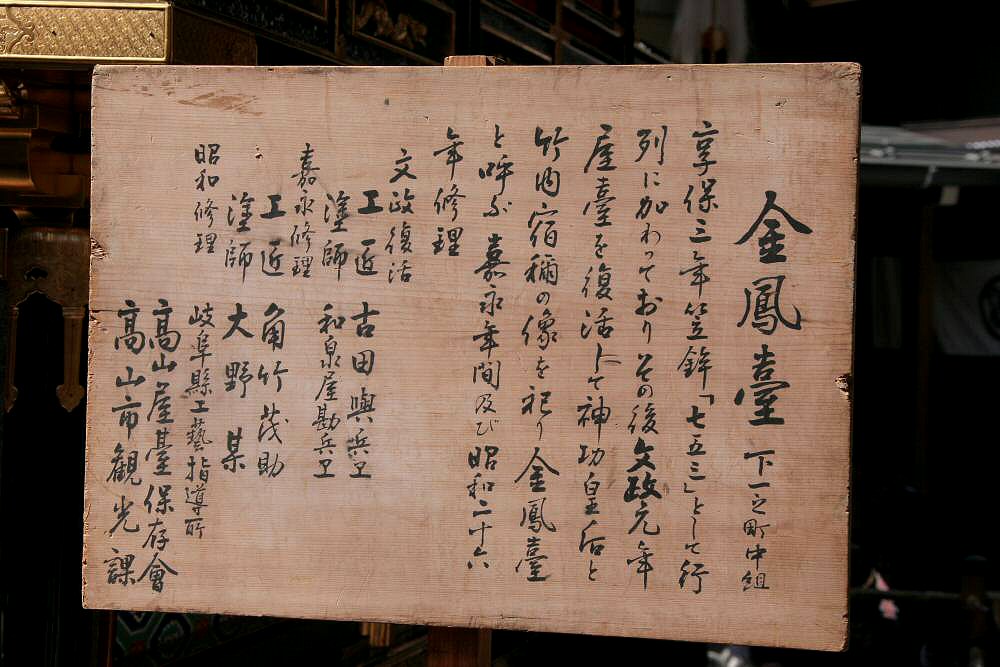 金鳳臺 下一之町中組
享保三年笠鉾「七五三」として行
列に加わっておりその後文政元年
屋臺を復活して神功皇后と
竹内宿禰の像を祀り金鳳臺
と呼ぶ 嘉永年間及び昭和二十六
年修理
文政復活
工匠 古田與兵卫
塗師 和泉屋勘兵卫
嘉永修理
工匠 角竹茂助
塗師 大野某
昭和修理 岐阜縣工藝指導所
高山屋臺保存會
高山市観光課